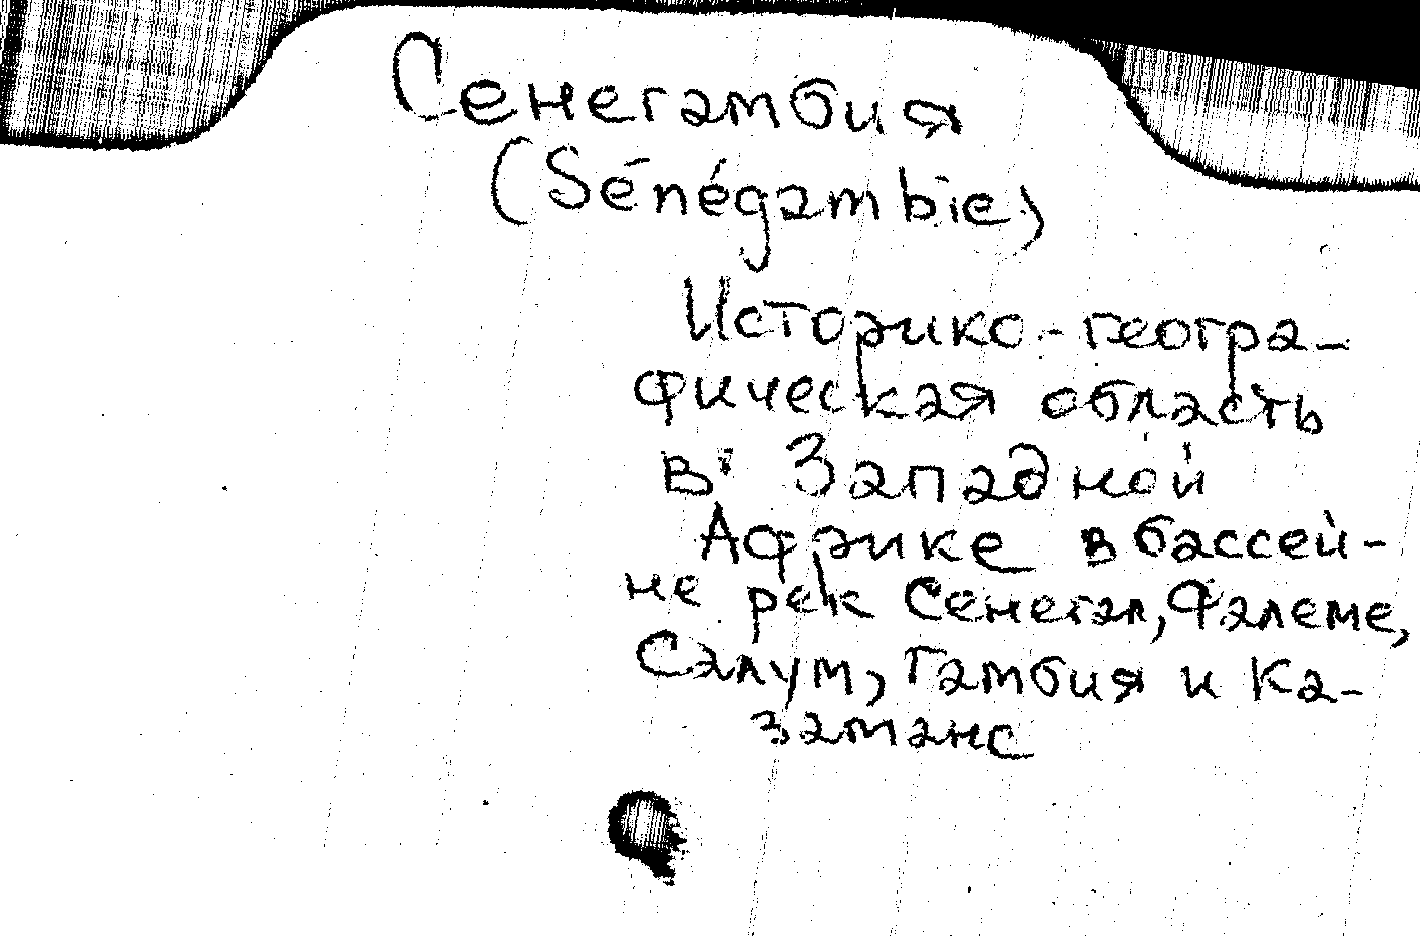 Сенегамбия
(Sénégambie)
Историко-геогра-
фическая область
в Западной
Африке в бассей-
не рек Сенегал, Фалеме,
Салум, Гамбия и Ка-
заманс